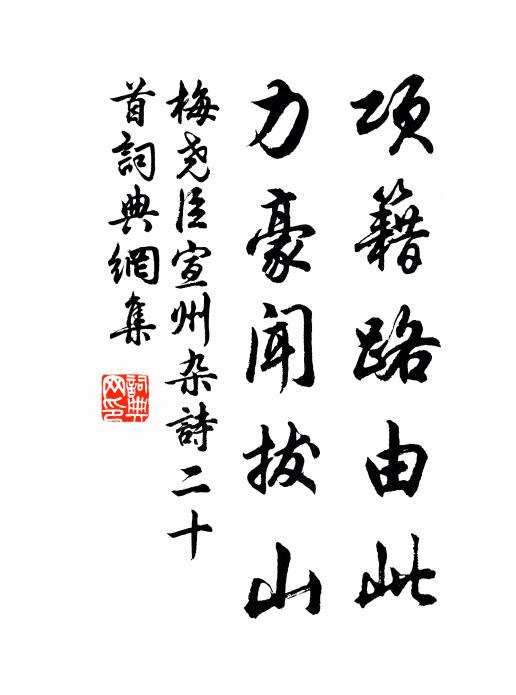 项籍路由此
力豪闻拔山
梅尧臣宣州杂詩二十
首詞典網集
詞典
网印